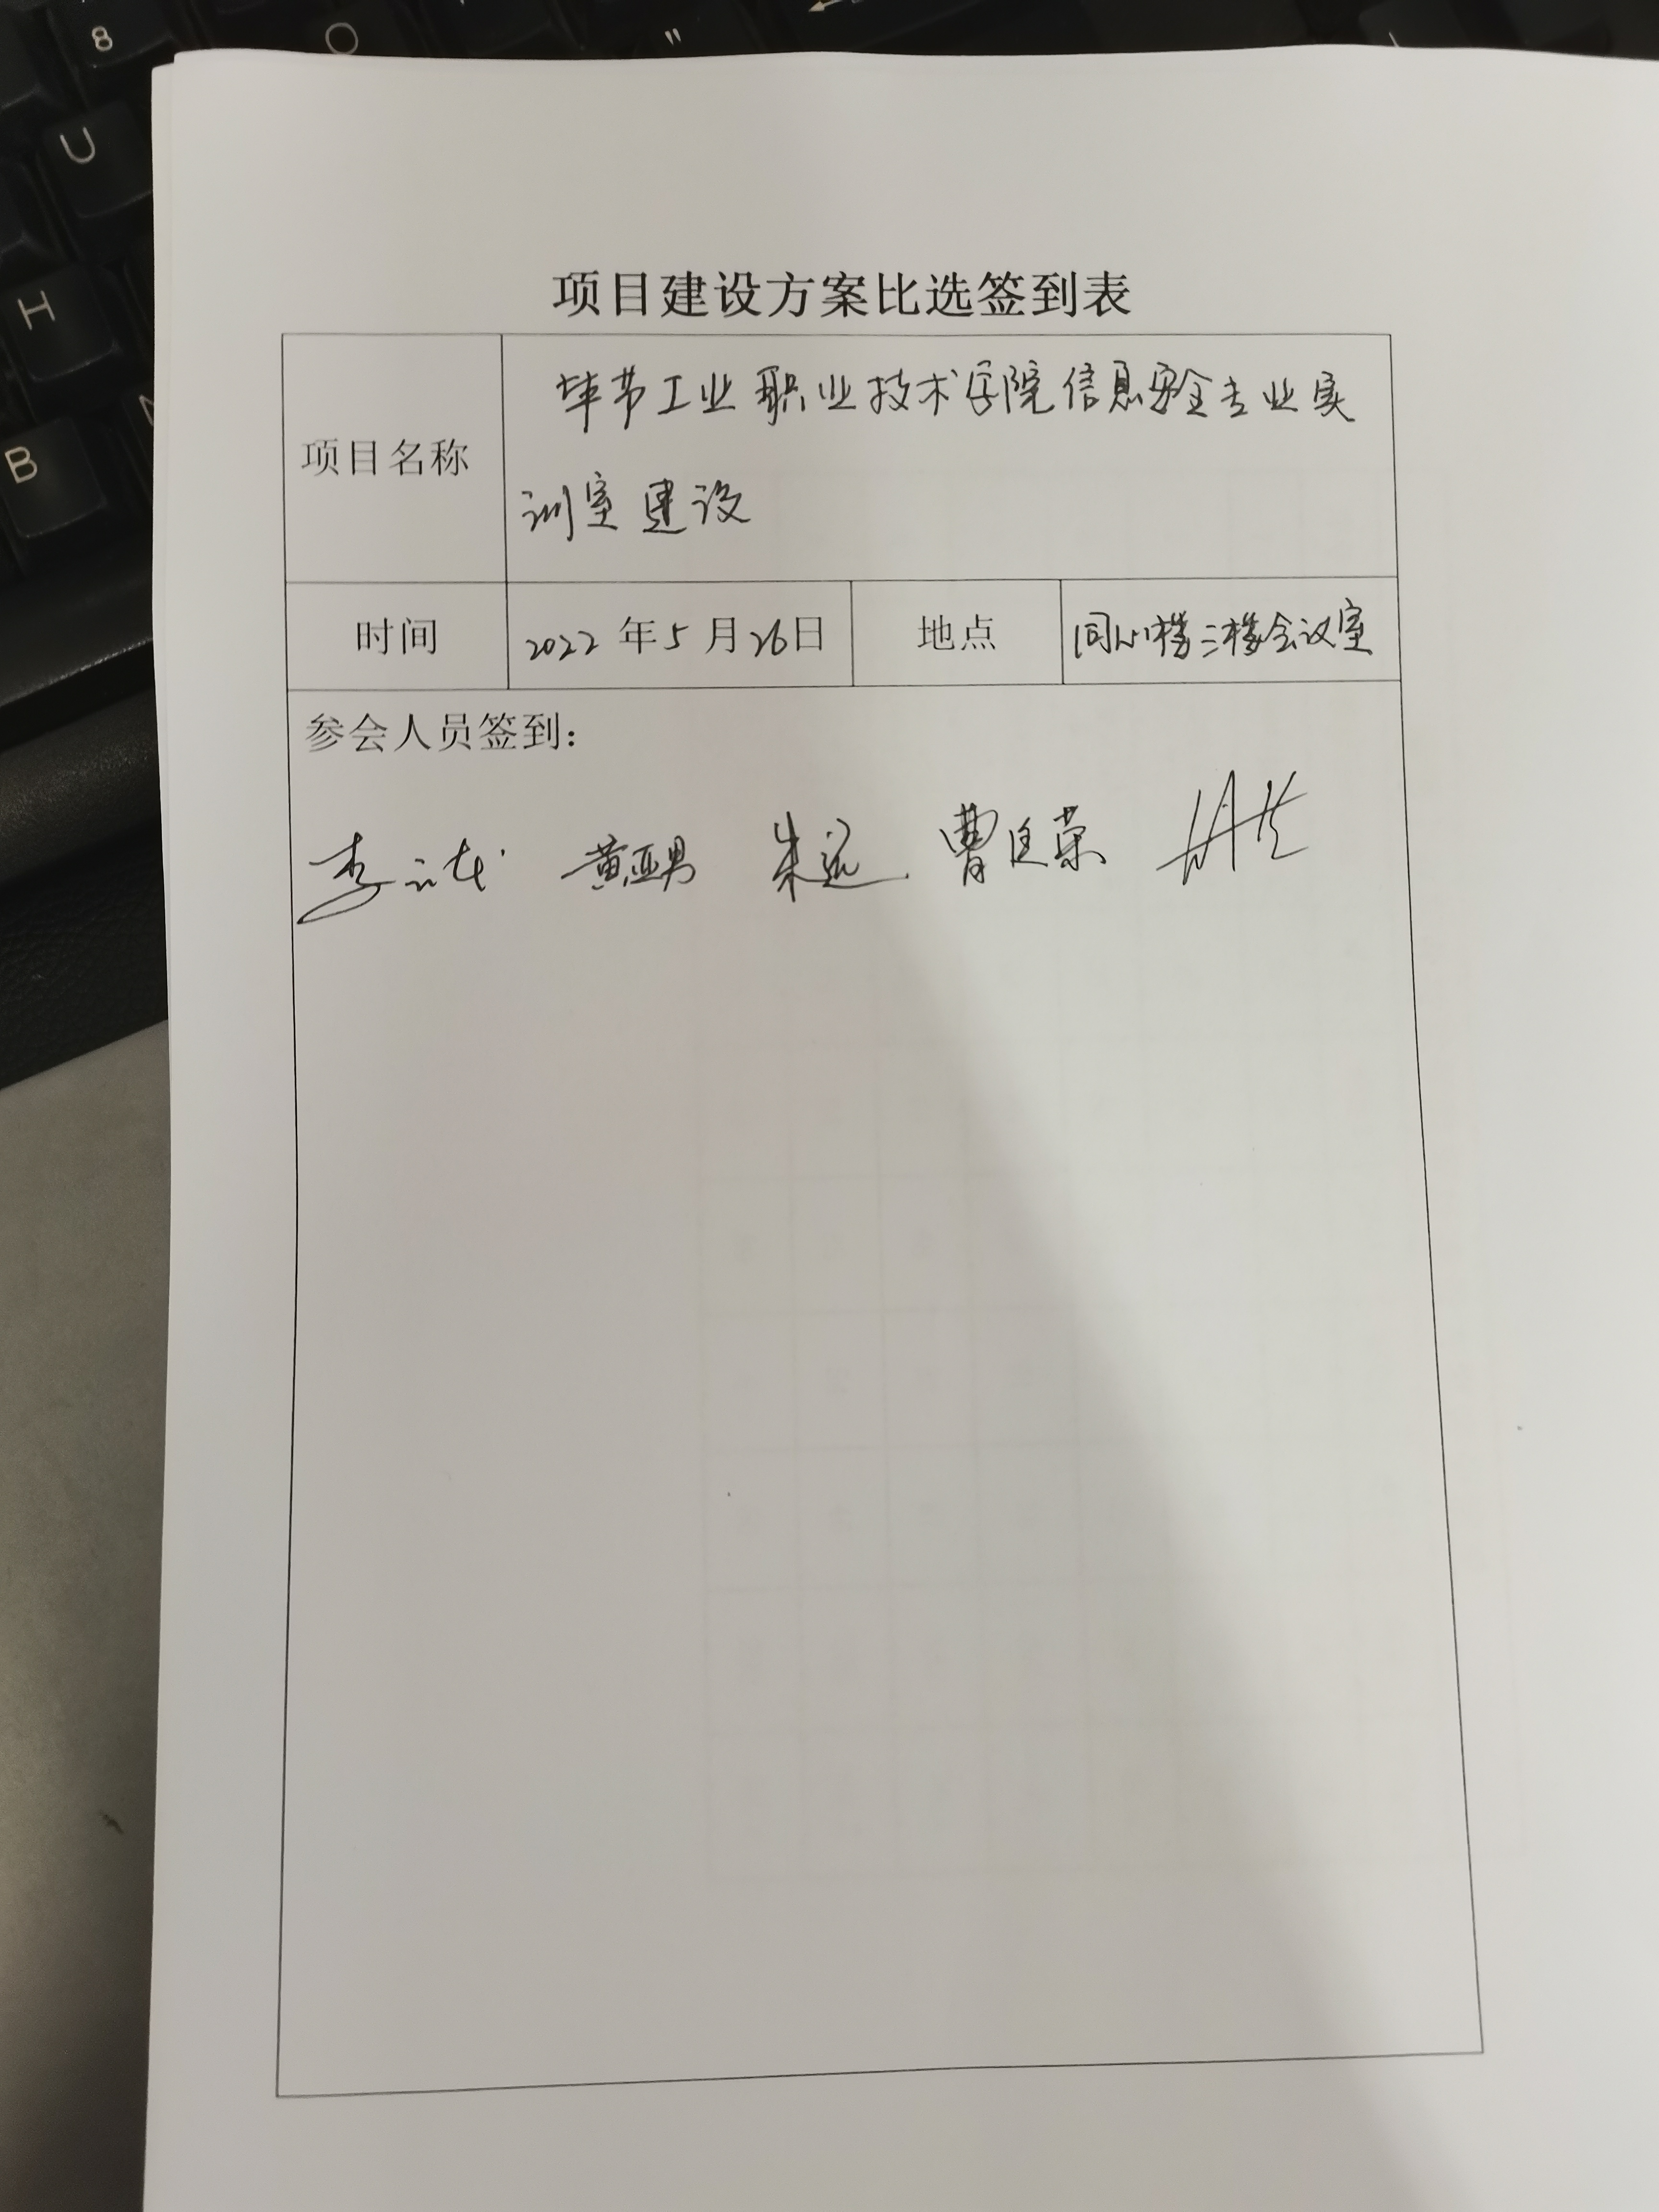 8
O
"
U
H
B
项目建设方案比选签到表
项目名称
毕节工业职业技术学院信息安全专业实
训室建设
时间
2022年5月26日
地点
同心楼二楼会议室
参会人员签到：
李 黄亚男 朱远 曹廷荣